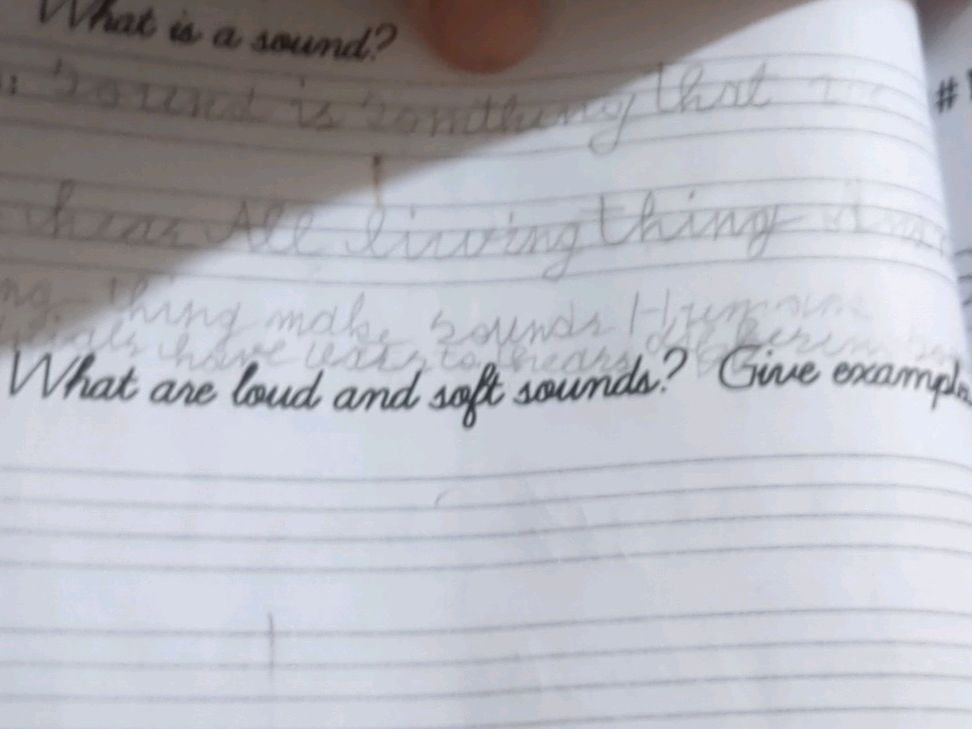 What is a sound?
: Sound is somthing that
hear All liwving thing
ng thing make sounds Human
have to hears
What are loud and soft sounds? Give exampl
#